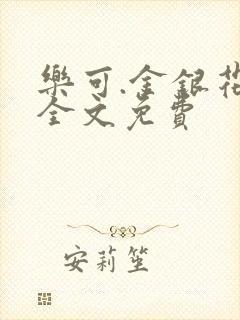 樂可.金銀花
全文免費
安莉笙